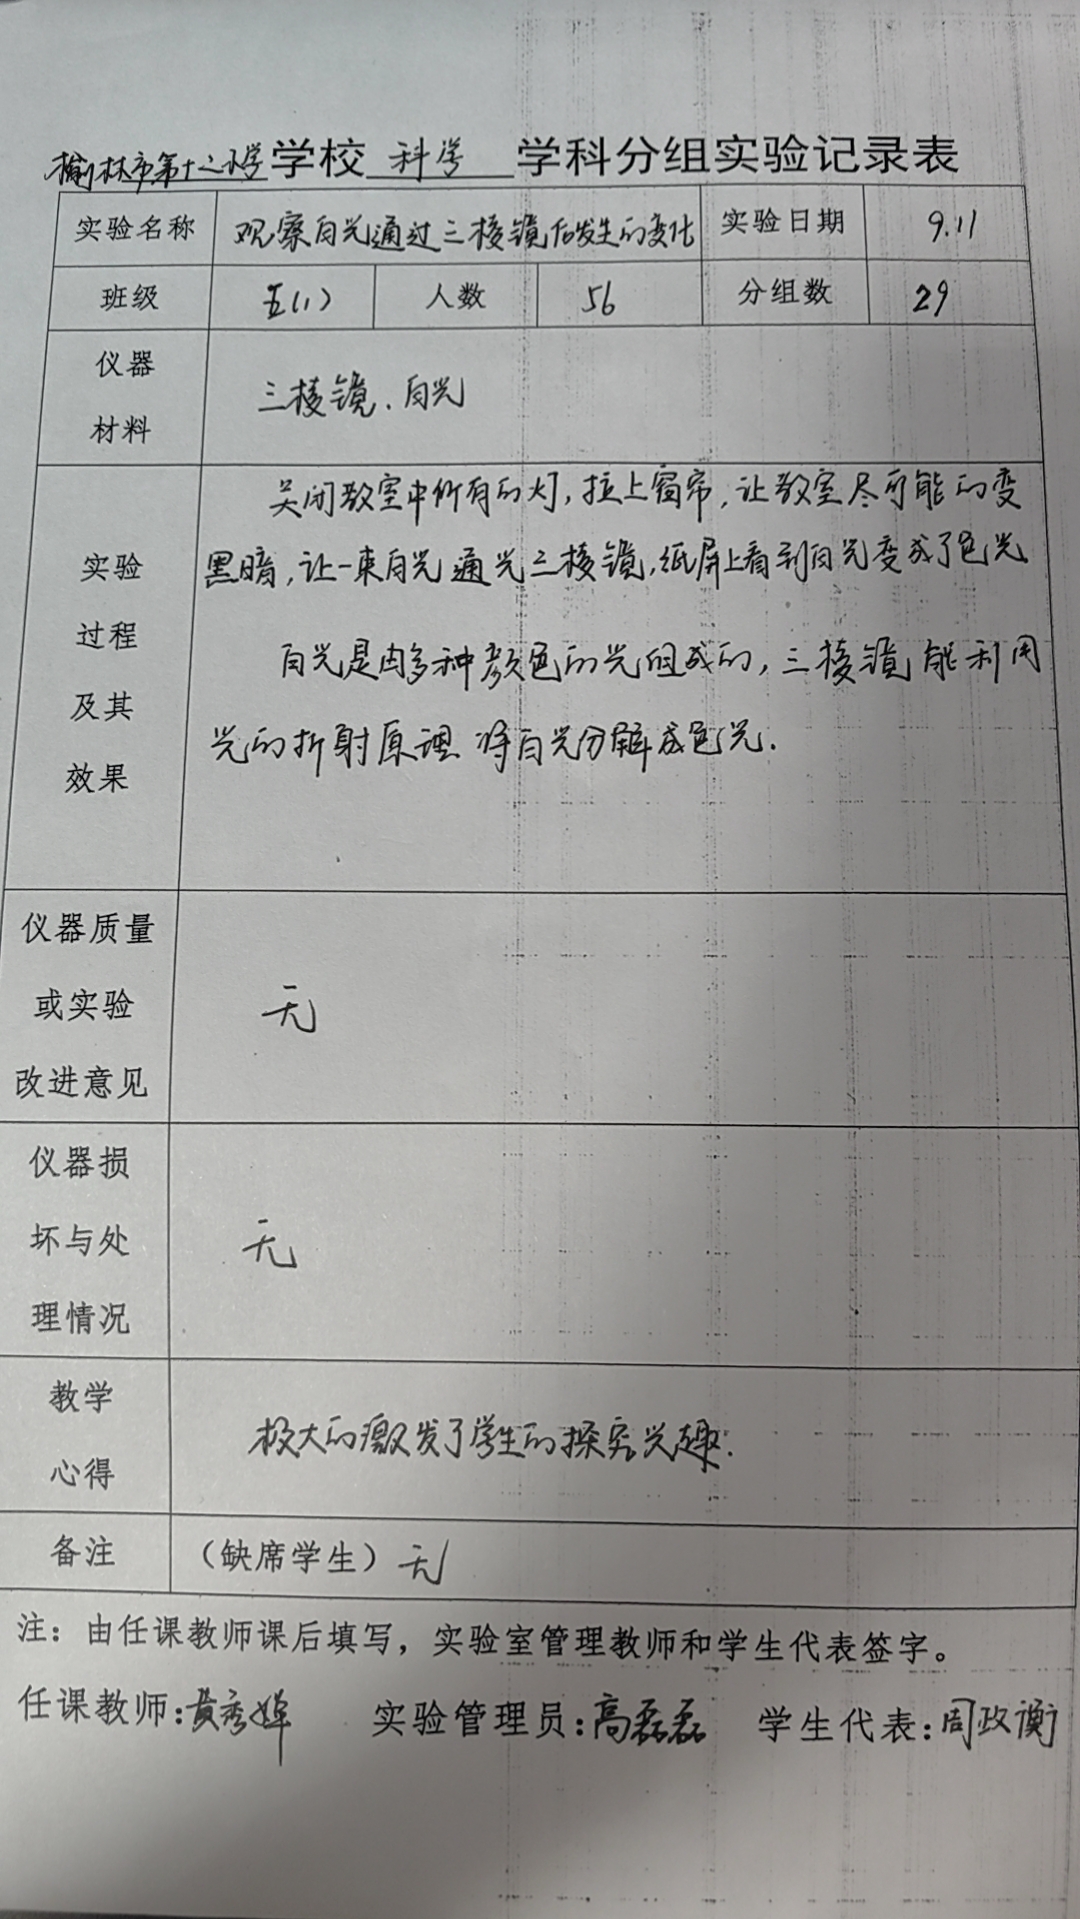 榆林市第十二小学学校 科学 学科分组实验记录表
实验名称 观察白光通过三棱镜后发生的变化 实验日期 9.11
班级 五(1) 人数 56 分组数 29
仪器
材料
三棱镜、白光
实验
过程
及其
效果
关闭教室中所有的灯,拉上窗帘,让教室尽可能的变
黑暗,让一束白光通光三棱镜,纸屏上看到白光变成了色光
白光是由多种颜色的光组成的,三棱镜能利用
光的折射原理将白光分解成色光.
仪器质量
或实验
改进意见
无
仪器损
坏与处
理情况
无
教学
心得
极大的激发了学生的探究兴趣.
备注 (缺席学生)无
注：由任课教师课后填写，实验室管理教师和学生代表签字。
任课教师:黄秀婵 实验管理员:高磊磊 学生代表:周政衡